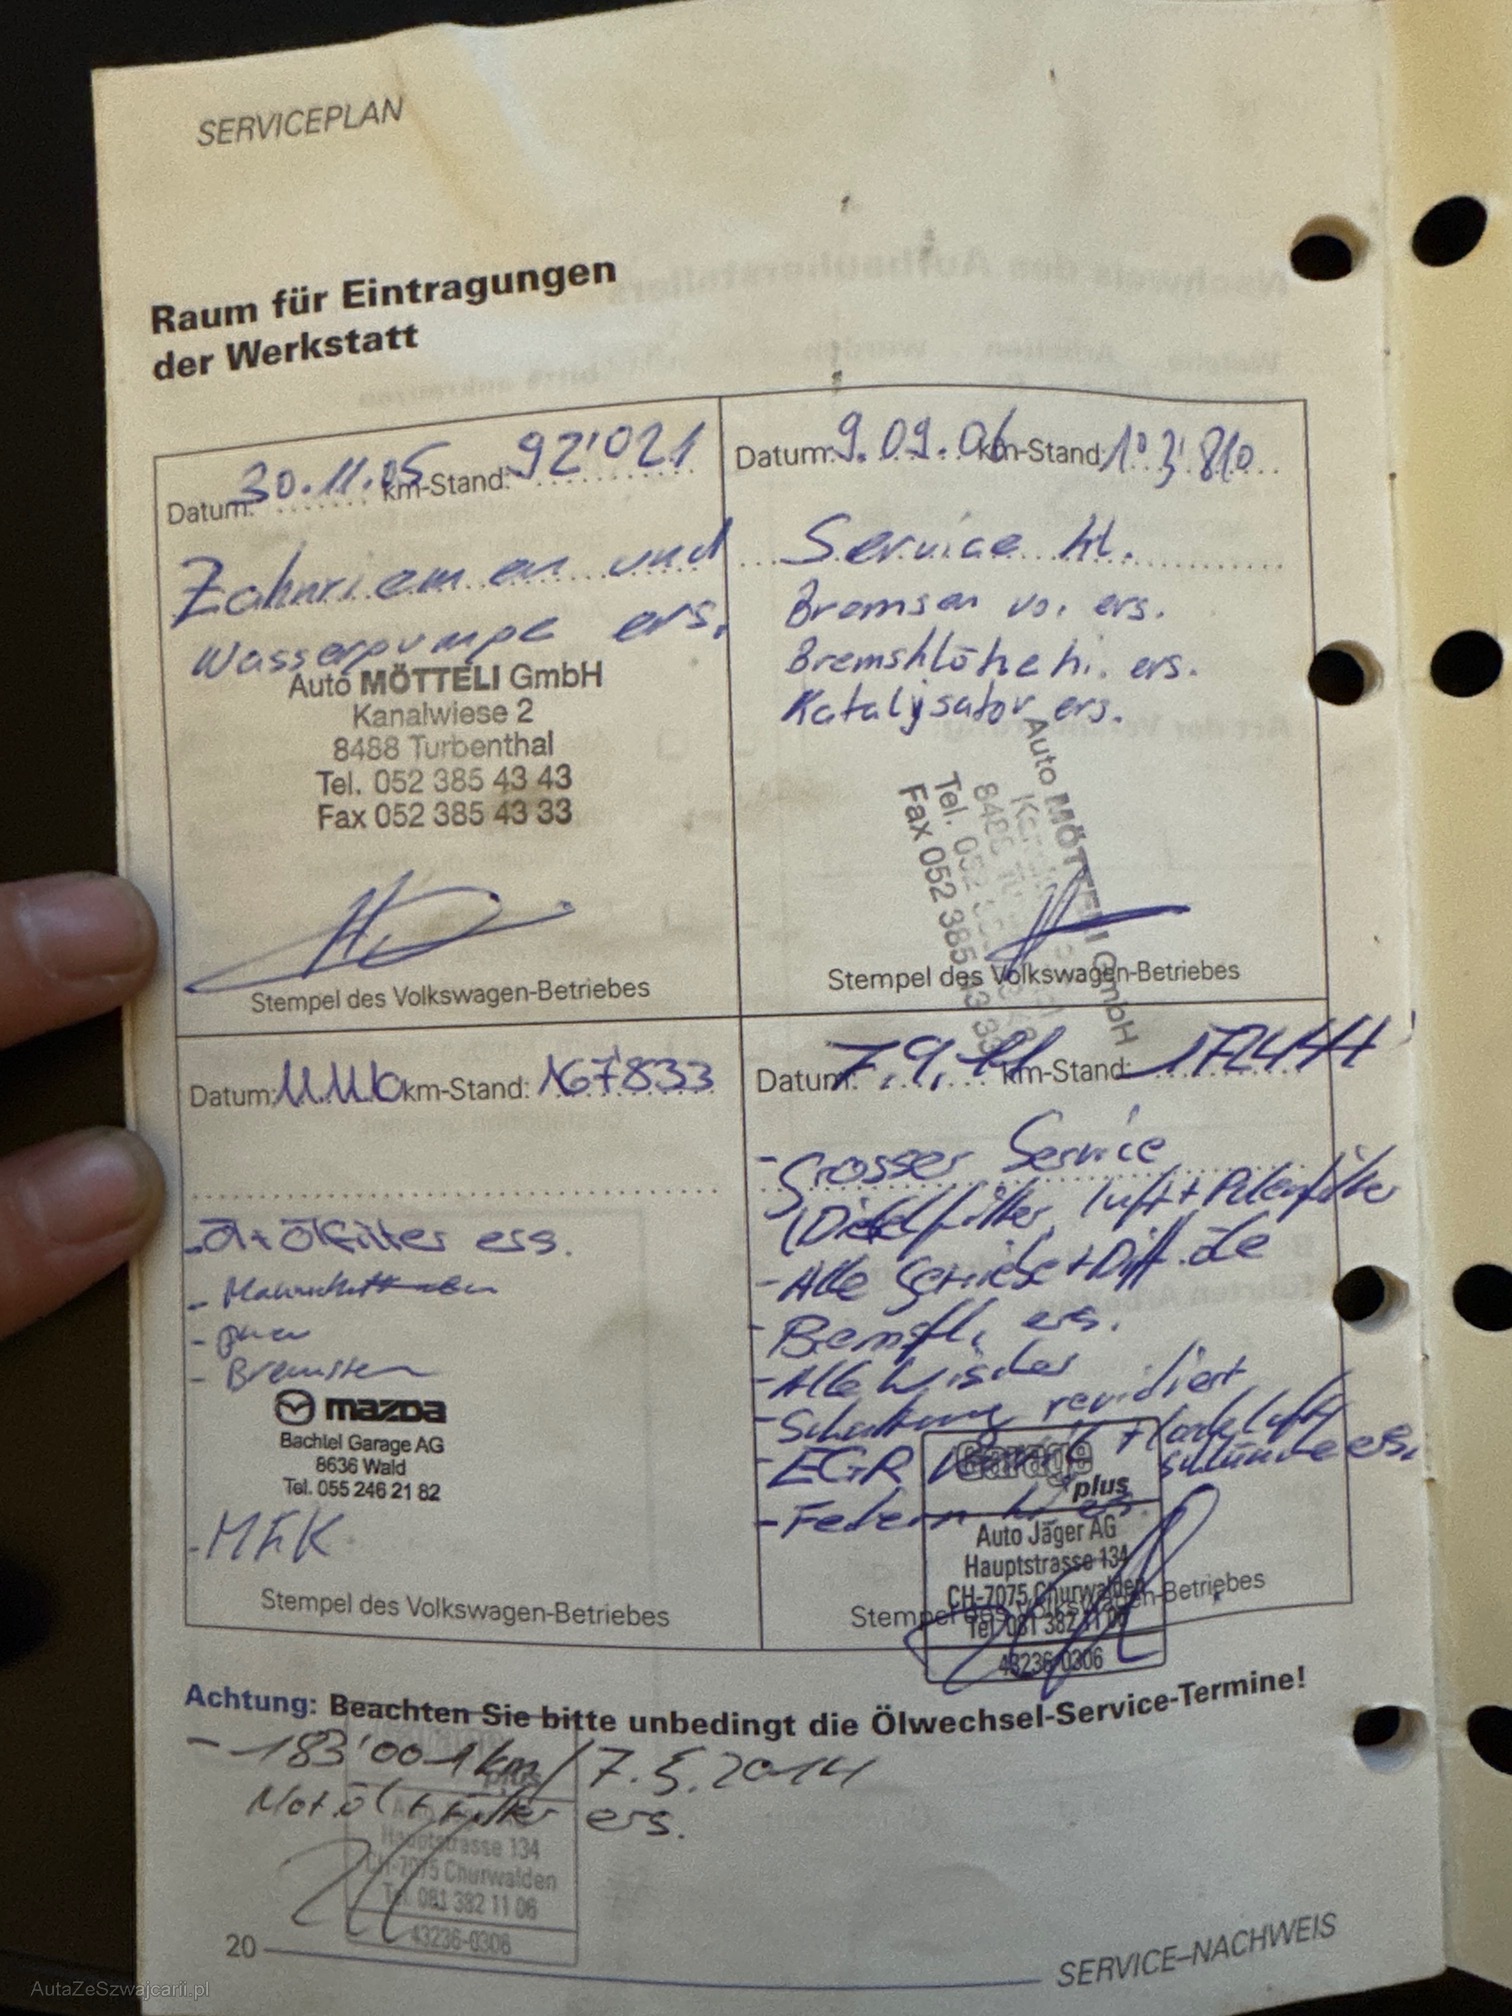 SERVICEPLAN
Raum für Eintragungen
der Werkstatt
Datum: 30.11.05 km-Stand: 92'021
Zahnriemen und
Wasserpumpe ers.
Auto MÖTTELI GmbH
Kanalwiese 2
8488 Turbenthal
Tel. 052 385 43 43
Fax 052 385 43 33
Stempel des Volkswagen-Betriebes
Datum: 9.09.06 km-Stand: 103'810
Service kl.
Bremsen vo. ers.
Bremsklötze hi. ers.
Katalysator ers.
Auto MÖTTELI GmbH
Tel. 052
Fax 052 385 43 33
Stempel des Volkswagen-Betriebes
Datum: 11.11.10 km-Stand: 167'833
- Öl + Ölfilter ers.
-
-
-
mazda
Bachtel Garage AG
8636 Wald
Tel. 055 246 21 82
- MFK
Stempel des Volkswagen-Betriebes
Datum: 7.9.11 km-Stand: 172444
- Grosser Service
(Dieselfilter, Luft + Pollenfilter
- Alle Getriebe + Diff. öle
- Bremsfl. ers.
- Alle Wischer
- Schaltung revidiert
- EGR
- Federn
Garage
plus
Auto Jäger AG
Hauptstrasse 134
CH-7075 Churwalden
Tel. 081 382 11 06
43236-0306
Stempel des Volkswagen-Betriebes
Achtung: Beachten Sie bitte unbedingt die Ölwechsel-Service-Termine!
- 183'001 km / 7.5.2014
Mot.öl + Filter ers.
plus
Hauptstrasse 134
CH-7075 Churwalden
Tel. 081 382 11 06
43236-0306
20
SERVICE–NACHWEIS
AutaZeSzwajcarii.pl